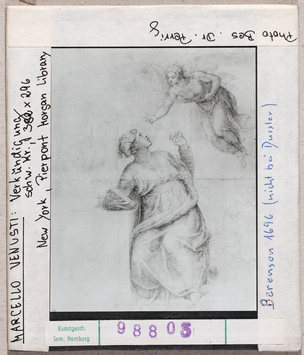 Photo Bes. Dr. Perrig
MARCELLO VENUSTI: Verkündigung
Schw. Kr., 382 x 296
New York, Pierpont Morgan Library
Berenson 1696 (nicht bei Dussler)
Kunstgesch.
Sem. Hamburg
98803